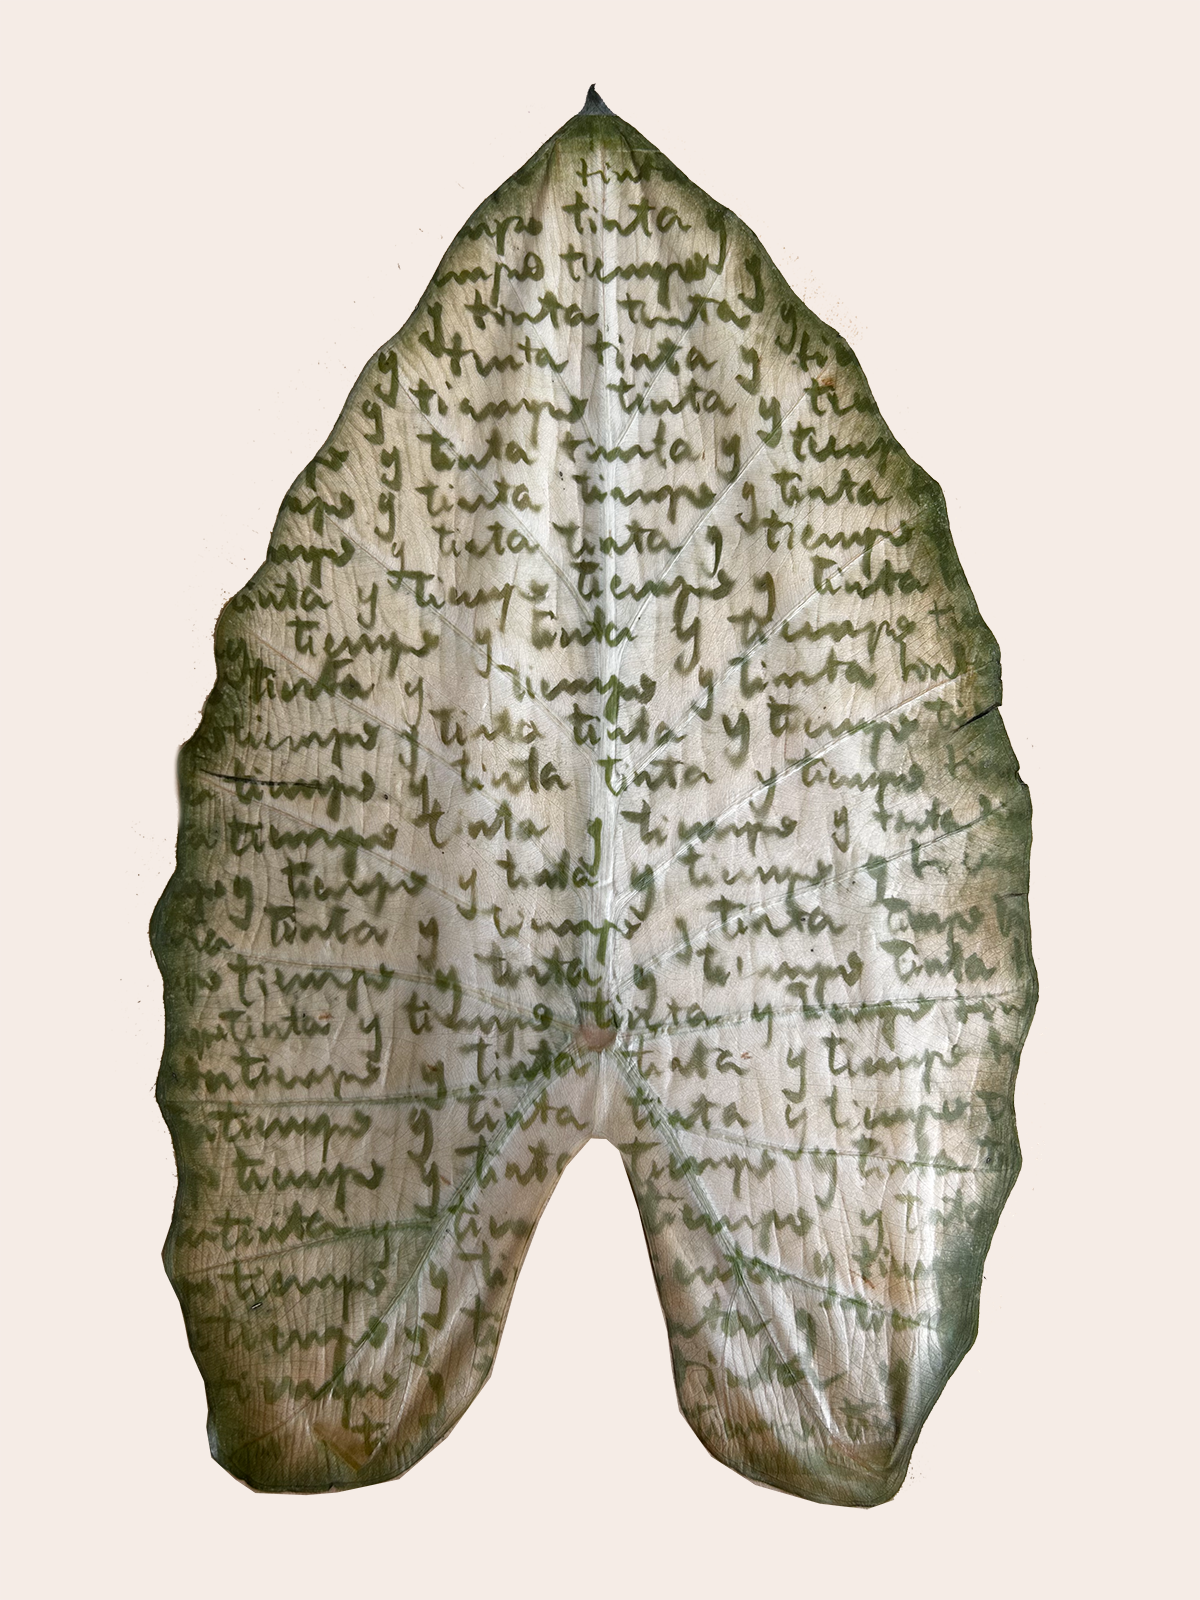 tinta
tinta y
tiempo y
y tinta tinta y
y tinta tinta y
y tiempo tinta y
y tinta tinta y tiempo
y tinta tiempo y tinta
y tinta tinta y tiempo
tinta y tiempo tiempo y tinta
tiempo y tinta y tiempo
tinta y tiempo y tinta
tiempo y tinta tinta y tiempo
tiempo y tinta tinta y tiempo
tiempo tinta y tiempo y tinta
y tiempo y tinta y tiempo
tinta y tiempo y tinta tiempo
tiempo y tinta y tiempo tinta
tinta y tiempo tinta y tiempo
tiempo y tinta tinta y tiempo
tiempo y tinta tinta y tiempo
tiempo y tinta tiempo y tinta
tinta y tiempo y
tiempo y y
tiempo y
tiempo